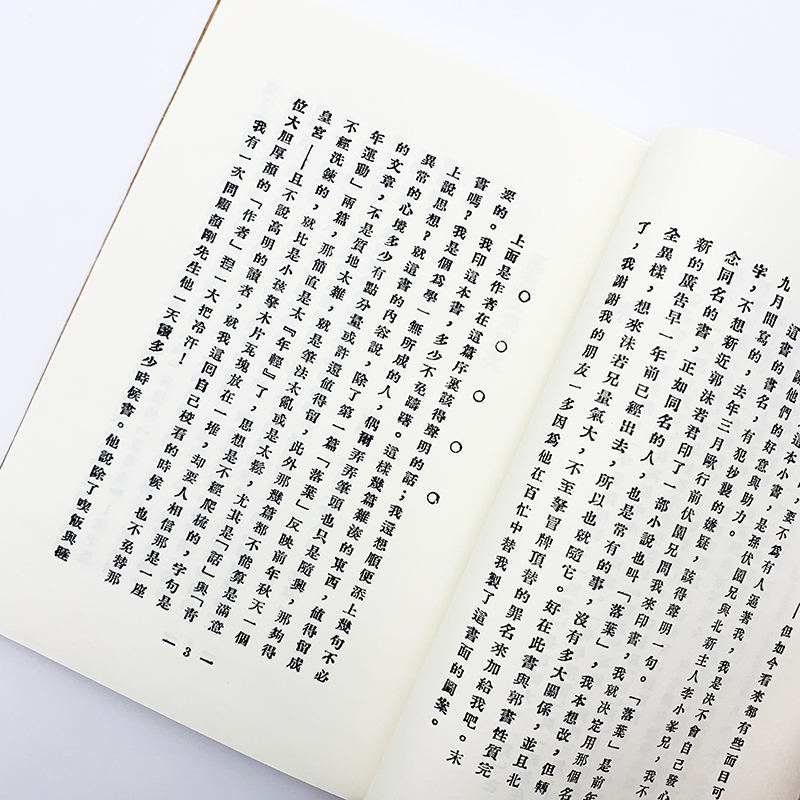 但如今看來都有些面目可
這本小書，要不為有人逼著我，我是決不會自己發心
讓他們的好意與助力。是孫伏園兄與北新主人李小峯兄，我不
這書的書名，有犯抄襲的嫌疑，該得聲明一句。「落葉」是前年
九月間寫的，去年三月歐行前伏園兄問我來印書，我就決定用那個名
字，不想新近郭沫若君印了一部小說也叫「落葉」，我本想改，但轉
念同名的書，正如同名的人，也是常有的事，沒有多大關係，並且北
新的廣告早一年前已經出去，所以也就隨它。好在此書與郭書性質完
全異樣，想來沫若兄量氣大，不至拏冒牌頂替的罪名來加給我吧。末
了，我謝謝我的朋友一多因為他在百忙中替我製了這書面的圖案。
○ ○ ○ ○ ○
上面是作者在這篇序裏該得聲明的話；我還想順便添上幾句不必
要的。我印這本書，多少不免躊躇。這樣幾篇雜湊的東西，值得留成
書嗎？我是個為學一無所成的人，偶爾弄弄筆頭也只是隨興，那夠得
上說思想？就這書的內容說，除了第一篇「落葉」反映前年秋天一個
異常的心境多少有點分量或許還值得留，此外那幾篇都不能算是滿意
的文章，不是質地太雜，就是筆法太亂或是太鬆，尤其是「話」與「青
年運動」兩篇，那簡直是太『年輕』了，思想是不經爬梳的，字句是
不經洗鍊的，就比是小孩拏木片瓦塊放在一堆，却要人相信那是一座
皇宮——且不說高明的讀者，就我這回自己校看的時候，也不免替那
位大胆厚顏的「作者」捏一大把冷汗！
我有一次問顧頡剛先生他一天讀多少時候書。他說除了喫飯與睡
— 3 —